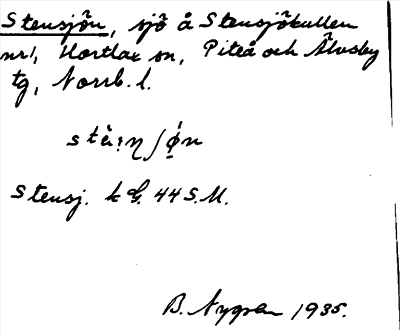 Stensjön, sjö å Stensjökullen
nr 1, Hortlax sn, Piteå och Älvsby
tg, Norrb. l.
Stensj. k G. 44 S.M.
B. Nygren 1935.